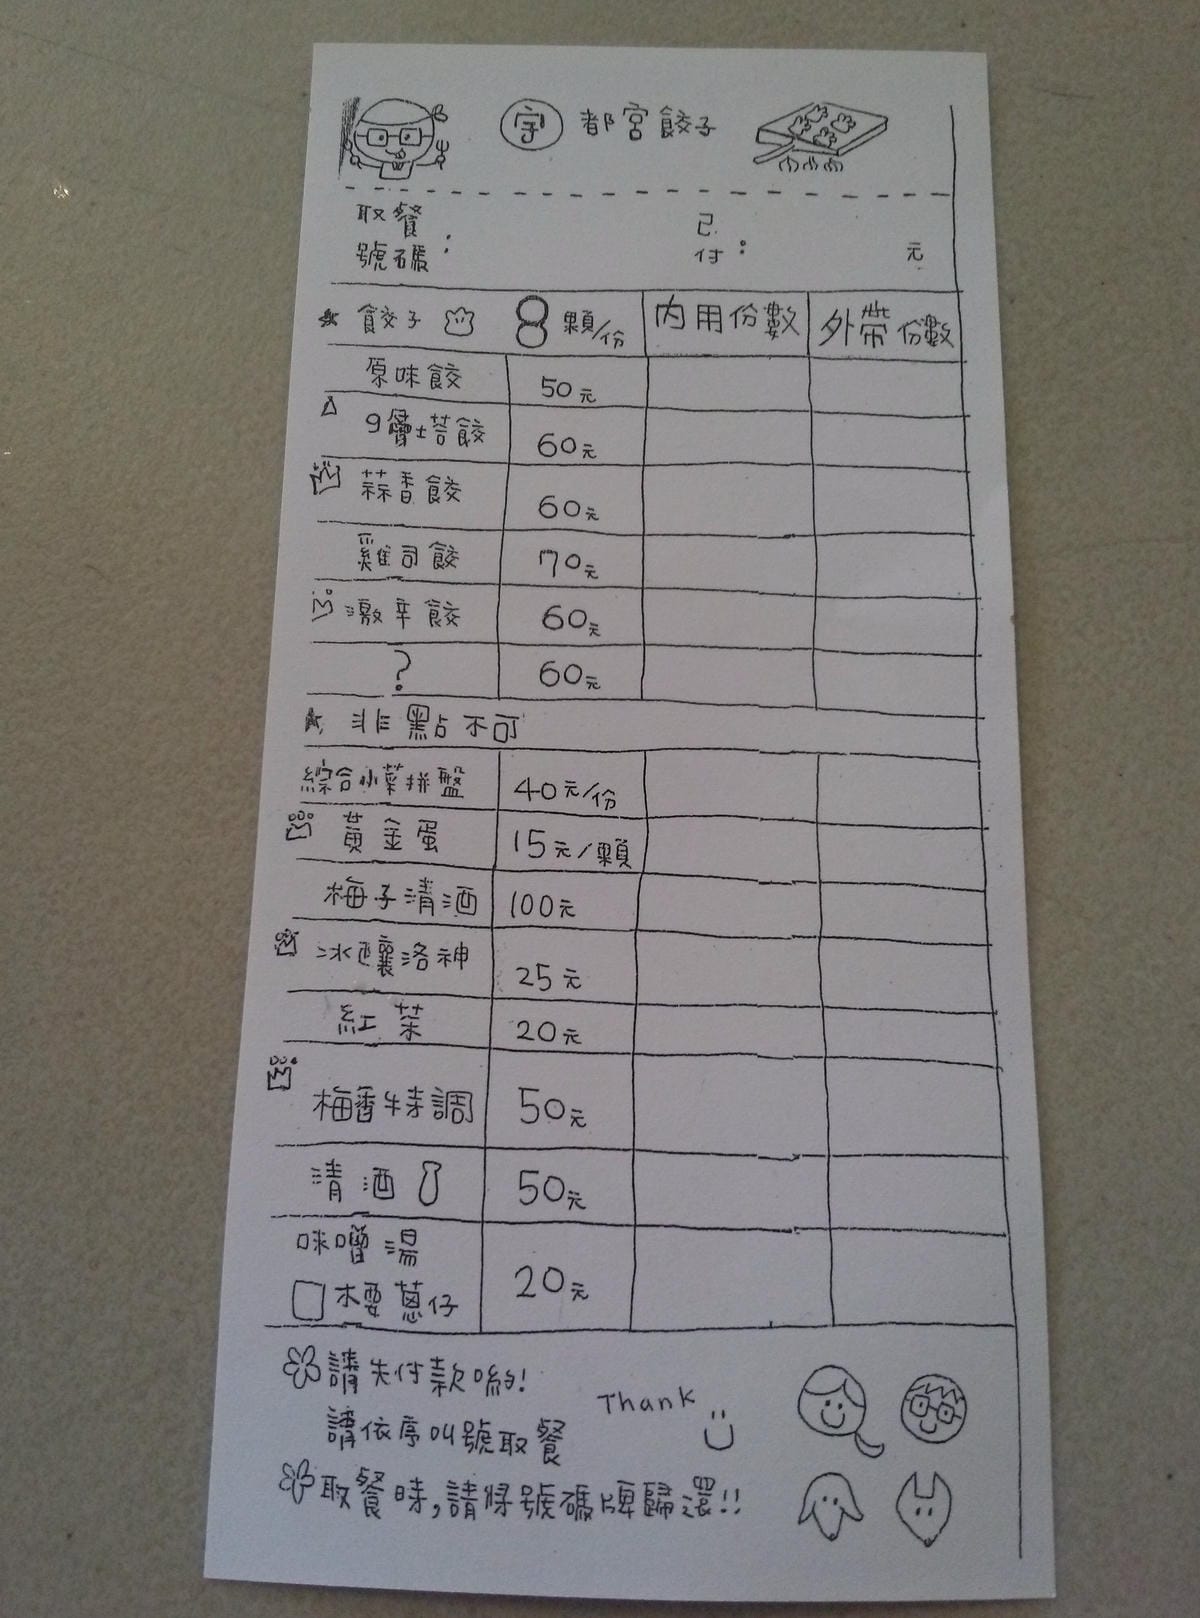 宇都宮餃子
取餐號碼: 已付: 元
餃子 8顆/份 內用份數 外帶份數
原味餃 50元
9層塔餃 60元
蒜香餃 60元
雞司餃 70元
激辛餃 60元
? 60元
非點不可
綜合小菜拼盤 40元/份
黃金蛋 15元/顆
梅子清酒 100元
冰釀洛神 25元
紅茶 20元
梅香特調 50元
清酒 50元
味噌湯
不要蔥仔 20元
請先付款喲!
請依序叫號取餐
Thank
取餐時,請將號碼牌歸還!!